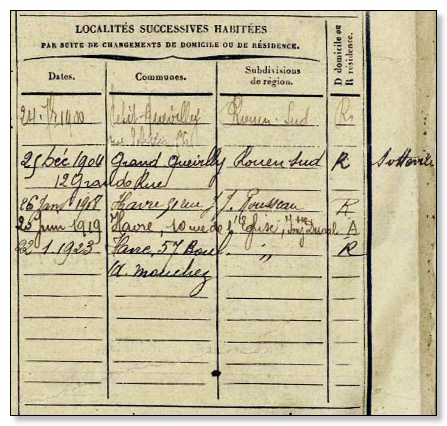 LOCALITÉS SUCCESSIVES HABITÉES
PAR SUITE DE CHANGEMENTS DE DOMICILE OU DE RÉSIDENCE.
D domicile ou
R résidence.
Dates. Communes. Subdivisions
de région.
24 1900 Petit-Quevilly Rouen-Sud R
25 Déc 1904 Grand Quevilly Rouen Sud R Sotteville
12 Grande Rue
1918 Havre J. J. Rousseau R
25 Juin 1919 Havre, 10 rue de l'Eglise,
22.1.1923 Havre, 57 Boul " R
A. Mouchez